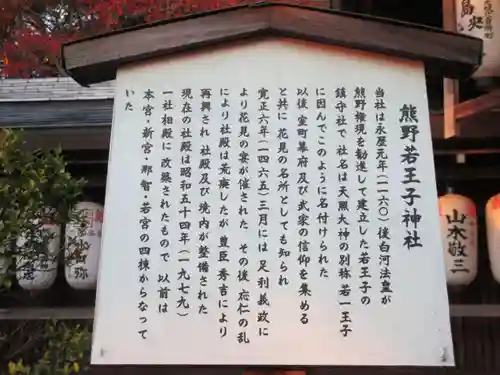 熊野若王子神社
当社は永歴元年（一一六〇）後白河法皇が
熊野権現を勧進して建立した若王子の
鎮守社で 社名は天照大神の別称 若一王子
に因んでこのように名付けられた
以後 室町幕府及び武家の信仰を集める
と共に 花見の名所としても知られ
寛正六年（一四六五）三月には 足利義政に
より花見の宴が催された その後 応仁の乱
により社殿は荒廃したが 豊臣秀吉により
再興され 社殿及び境内が整備された
現在の社殿は昭和五十四年（一九七九）
一社相殿に 改築されたもので 以前は
本宮・新宮・那智・若宮の四棟からなって
いた
山本敬三